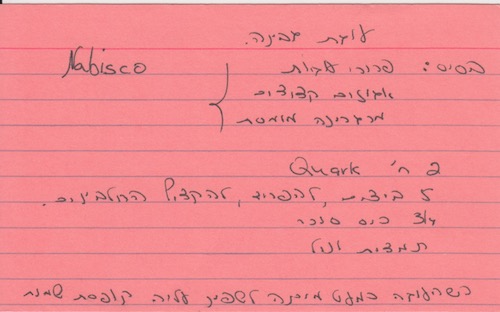 עוגת גבינה.
בסיס: פרורי עוגות } Nabisco
אגוזים קצוצים
מרגרינה מומסת
2 ח' Quark
5 ביצים, להפריד, להקציף החלבונים.
3/4 כוס סוכר
תמצית וניל
כשהעוגה כמעט מוכנה לשפוך עליה קופסת שמנת